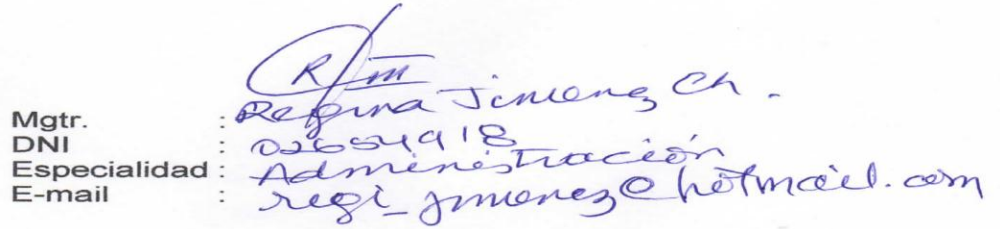 Mgtr. : Regina Jimenez Ch.
DNI : 02654918
Especialidad : Administración
E-mail : regi_jimenez@hotmail.com